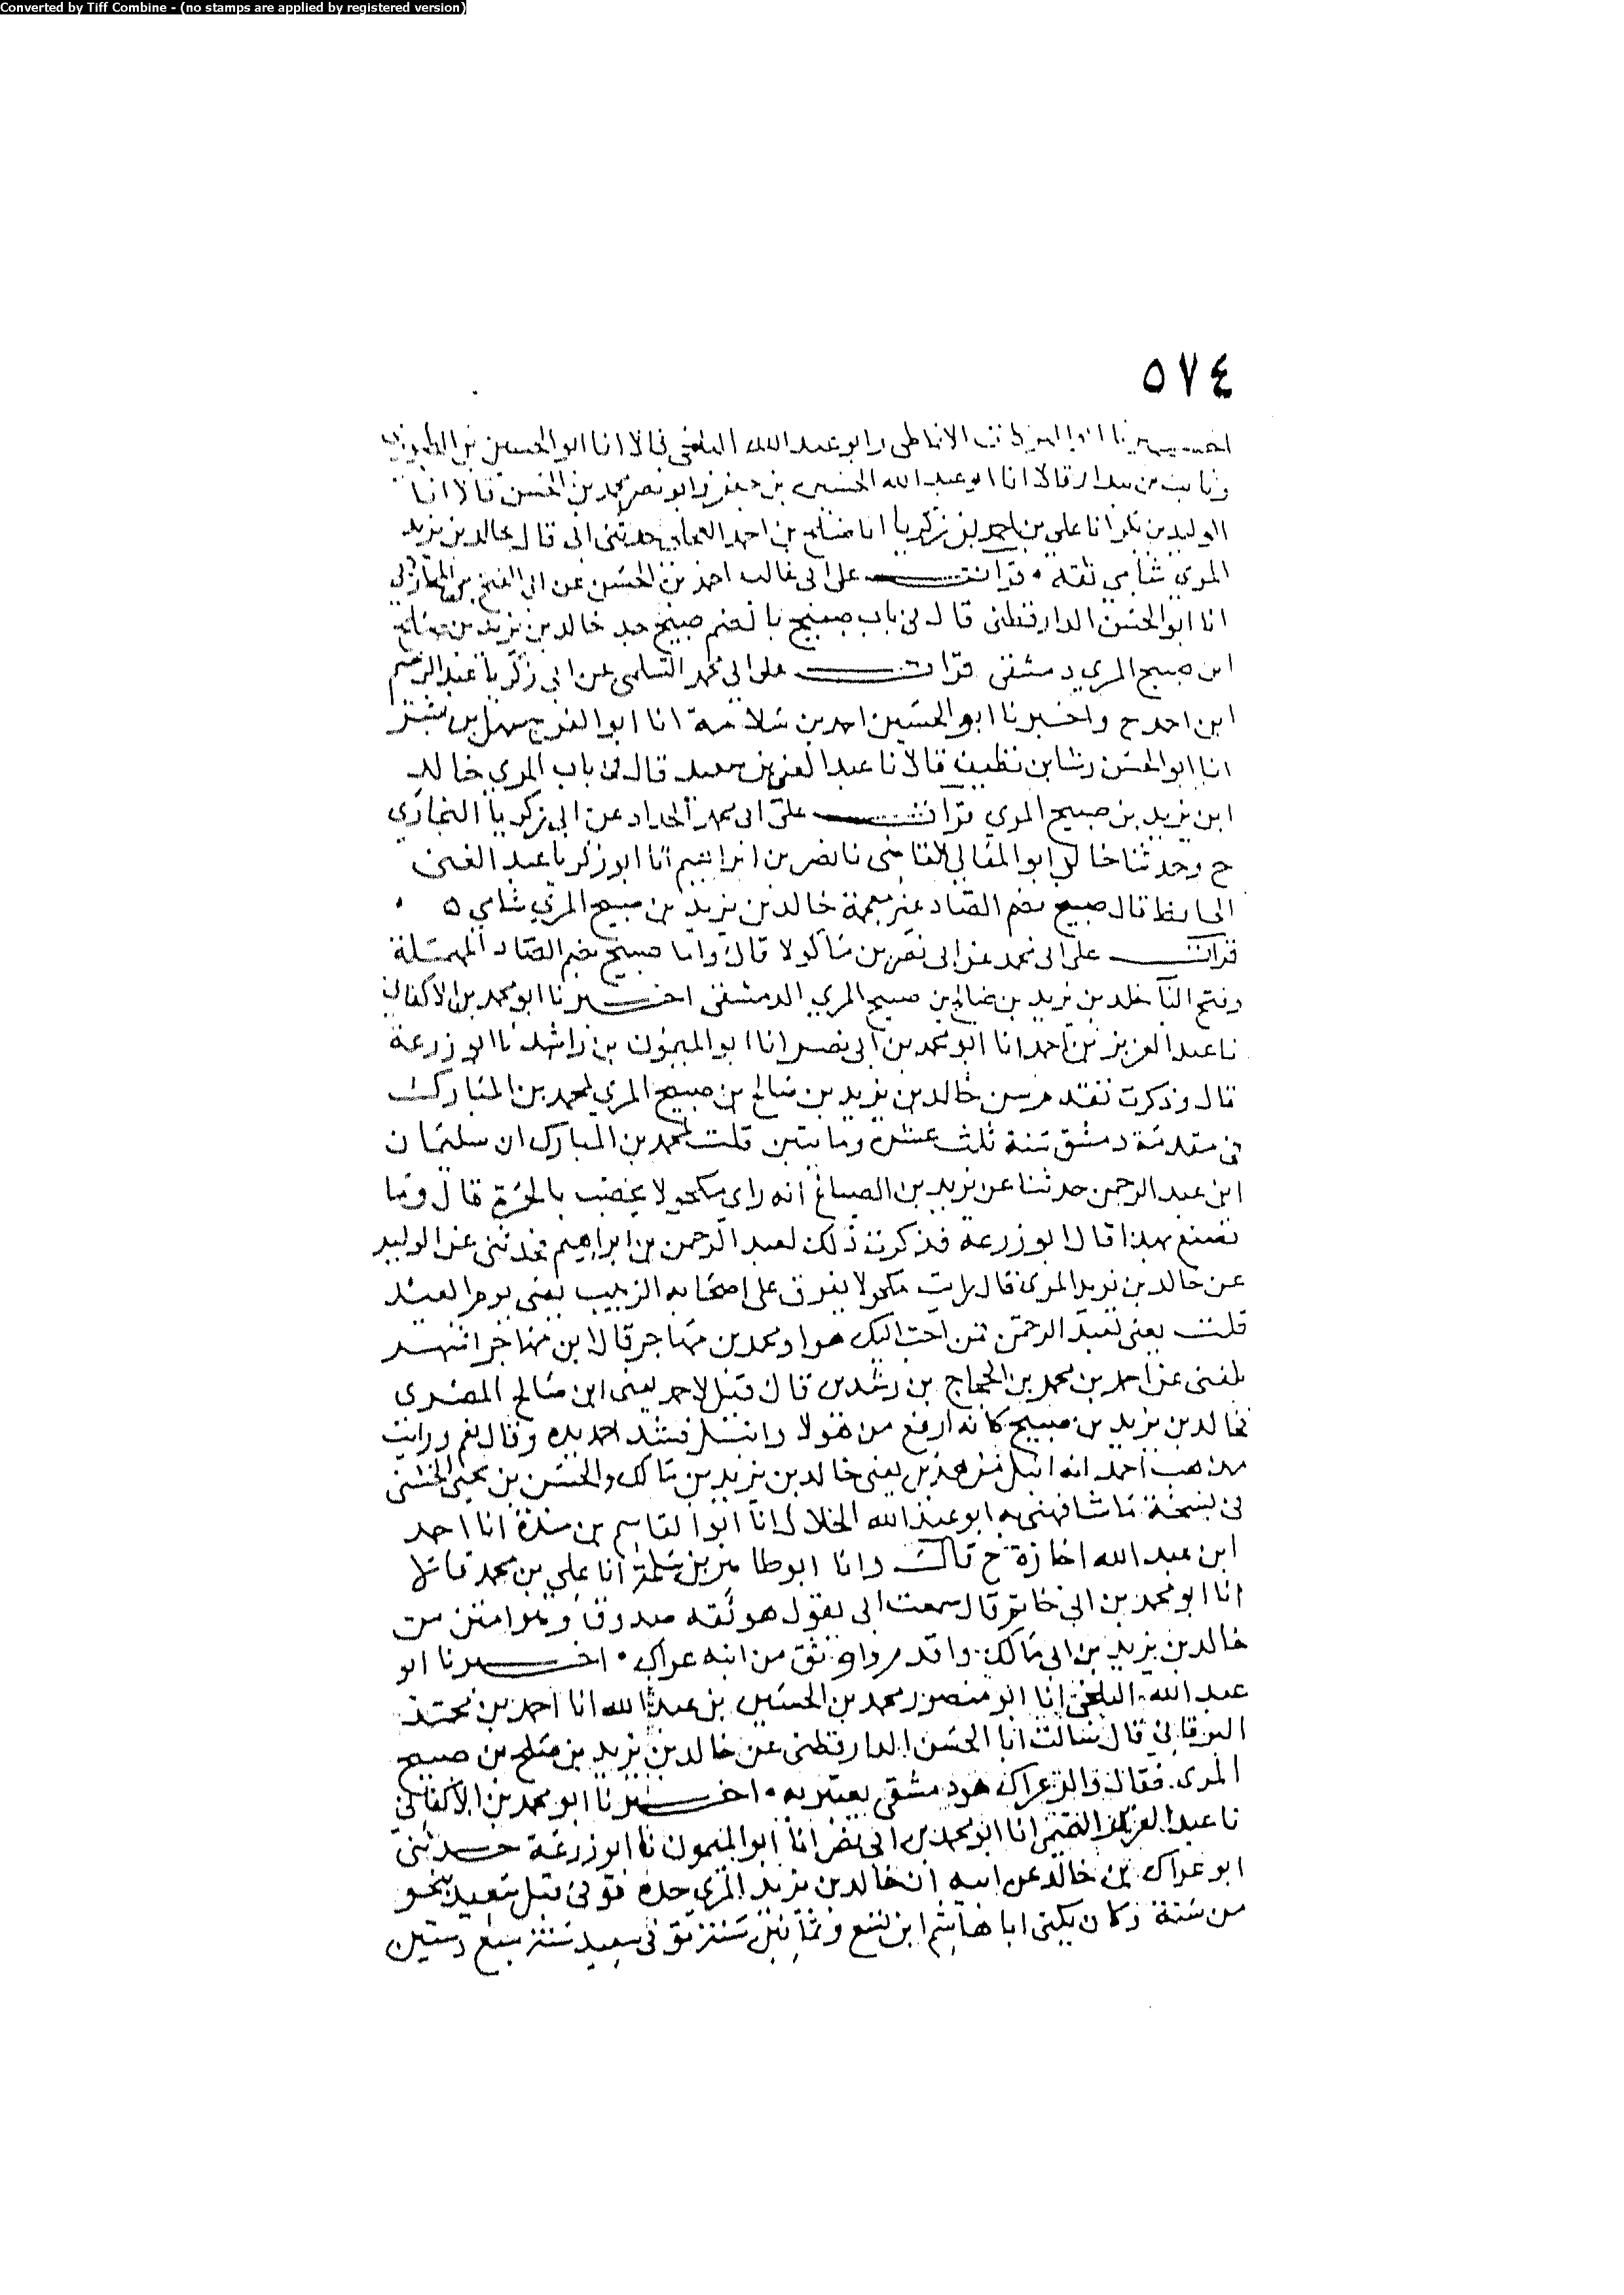 Converted by Tiff Combine - (no stamps are applied by registered version)
٥٧٤
اخبرنا ابو البركات الانماطي وابو عبد الله البلخي قالا انا ابو الحسين بن الطيوري
وثابت بن بندار قالا انا ابو عبد الله الحسين بن جعفر وابو نصر محمد بن الحسن قالا انا
الوليد بن بكر انا علي بن احمد بن زكريا انا صالح بن احمد العجلي حدثني ابي قال خالد بن يزيد
المري شامي ثقه • قرات على ابي غالب احمد بن الحسن عن ابي الفتح بن المحاملي
انا ابو الحسن الدارقطني قال في باب صبيح بالضم صبيح جد خالد بن يزيد بن صالح
ابن صبيح المري دمشقي قرات على ابي محمد السلمي عن ابي زكريا عبد الرحيم
ابن احمد ح واخبرنا ابو الحسين احمد بن سلامة انا ابو الفرج سهل بن بشر
انا ابو الحسن رشا بن نظيف قالا نا عبد الغني بن سعيد قال في باب المري خالد
ابن يزيد بن صبيح المري قرات على ابي محمد الحداد عن ابي زكريا البخاري
ح وحدثنا خالي ابو المعالي القاضي نا نصر بن ابراهيم انا ابو زكريا عبد الغني
الحافظ قال صبيح بضم الصاد غير معجمة خالد بن يزيد بن صبيح المري شامي ه
قرات على ابي محمد عن ابي نصر بن ماكولا قال واما صبيح بضم الصاد المهملة
وفتح البآ خلد بن يزيد بن صالح بن صبيح المري الدمشقي اخبرنا ابو محمد بن الاكفاني
نا عبد العزيز بن احمد انا ابو محمد بن ابي نصر انا ابو الميمون بن راشد نا ابو زرعة
قال وذكرت تقدم سن خالد بن يزيد بن صالح بن صبيح المري لمحمد بن المبارك
في مقدمة دمشق سنة ثلث عشره ومايتين قلت لمحمد بن المبارك ان سليمان
ابن عبد الرحمن حدثنا عن يزيد بن الصباغ انه راى مكحولا يخضب بالحمرة قال وما
تصنع بهذا قال ابو زرعة فذكرت ذلك لعبد الرحمن بن ابراهيم فحدثني عن الوليد
عن خالد بن يزيد المري قال رايت مكحولا يفرق على اصحابه الزبيب يعني يوم العيد
قلت يعني لعبد الرحمن من احب اليك هو او محمد بن مهاجر قال ابن مهاجر اشهر
بلغني عن احمد بن محمد بن الحجاج بن رشدين قال قيل لاحمد يعني ابن صالح المصري
فخالد بن يزيد بن صبيح كانه ارفع من هولا وانبل فشد احمد يده وقال نعم ورايت
مذاهب احمد انه انبل من هذين يعني خالد بن يزيد بن مالك والحسن بن يحيى الخشني
في نسخة ما شافهني به ابو عبد الله الخلال انا ابو القاسم بن مندة انا احمد
ابن عبد الله اجازة ح قال وانا ابو طاهر بن سلمة انا علي بن محمد قالا
انا ابو محمد بن ابي حاتم قال سمعت ابي يقول هو ثقه صدوق وهو امتن من
خالد بن يزيد بن ابي مالك واقدم واوثق من ابنه عراك • اخبرنا ابو
عبد الله البلخي انا ابو منصور محمد بن الحسين بن عبد الله انا احمد بن محمد
البرقاني قال سالت ابا الحسن الدارقطني عن خالد بن يزيد بن صالح بن صبيح
المري فقال والد عراك هو دمشقي يعتبر به • اخبرنا ابو محمد بن الاكفاني
نا عبد العزيز التميمي انا ابو محمد بن ابي نصر انا ابو الميمون نا ابو زرعة حدثني
ابو عراك بن خالد عن ابيه ان خالد بن يزيد المري جده توفي قبل سعيد بنحو
من سنة وكان يكنى ابا هاشم ابن تسع وثمانين سنة توفي سعيد سنة سبع وستين